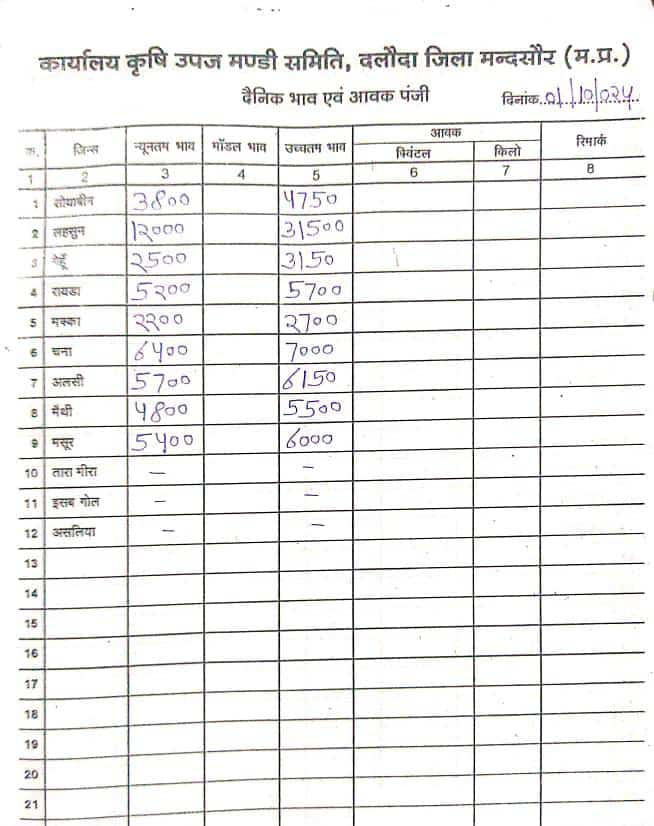 कार्यालय कृषि उपज मण्डी समिति, दलौदा जिला मन्दसौर (म.प्र.)
दैनिक भाव एवं आवक पंजी दिनांक..01/10/024
क. जिन्स न्यूनतम भाव मॉडल भाव उच्चतम भाव आवक रिमार्क
क्विंटल किलो
1 2 3 4 5 6 7 8
1 सोयाबीन 3800 4750
2 लहसुन 12000 31500
3 गेहूँ 2500 3150
4 रायडा 5200 5700
5 मक्का 2200 2700
6 चना 6400 7000
7 अलसी 5700 6150
8 मैथी 4800 5500
9 मसूर 5400 6000
10 तारा मीरा – –
11 इसब गोल – –
12 असलिया – –
13
14
15
16
17
18
19
20
21